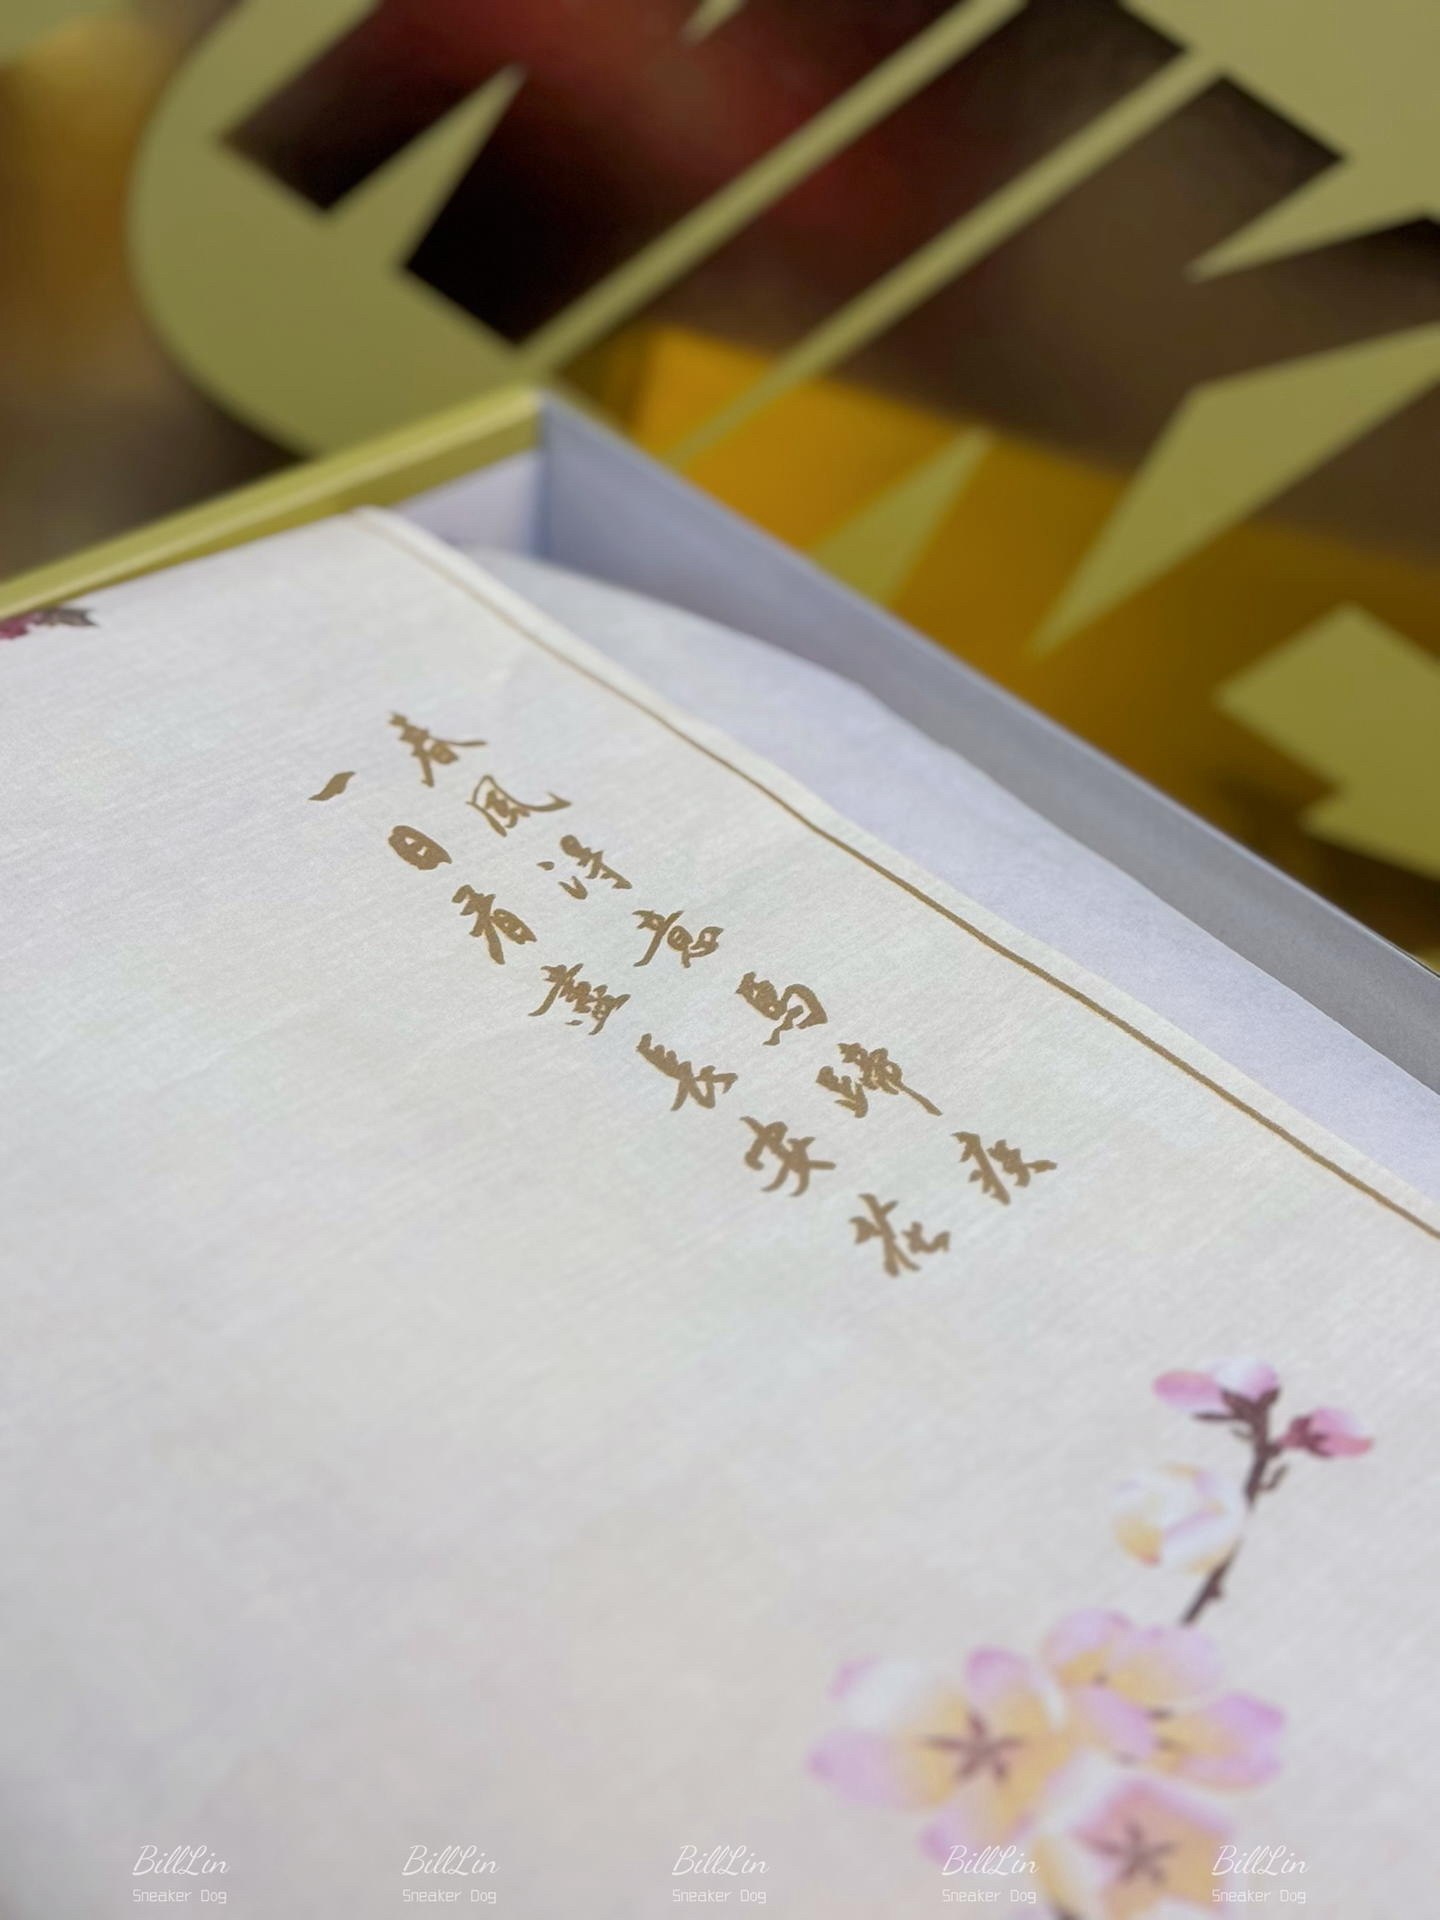 春風得意馬蹄疾
一日看盡長安花
BillLin BillLin BillLin BillLin BillLin
Sneaker Dog Sneaker Dog Sneaker Dog Sneaker Dog Sneaker Dog